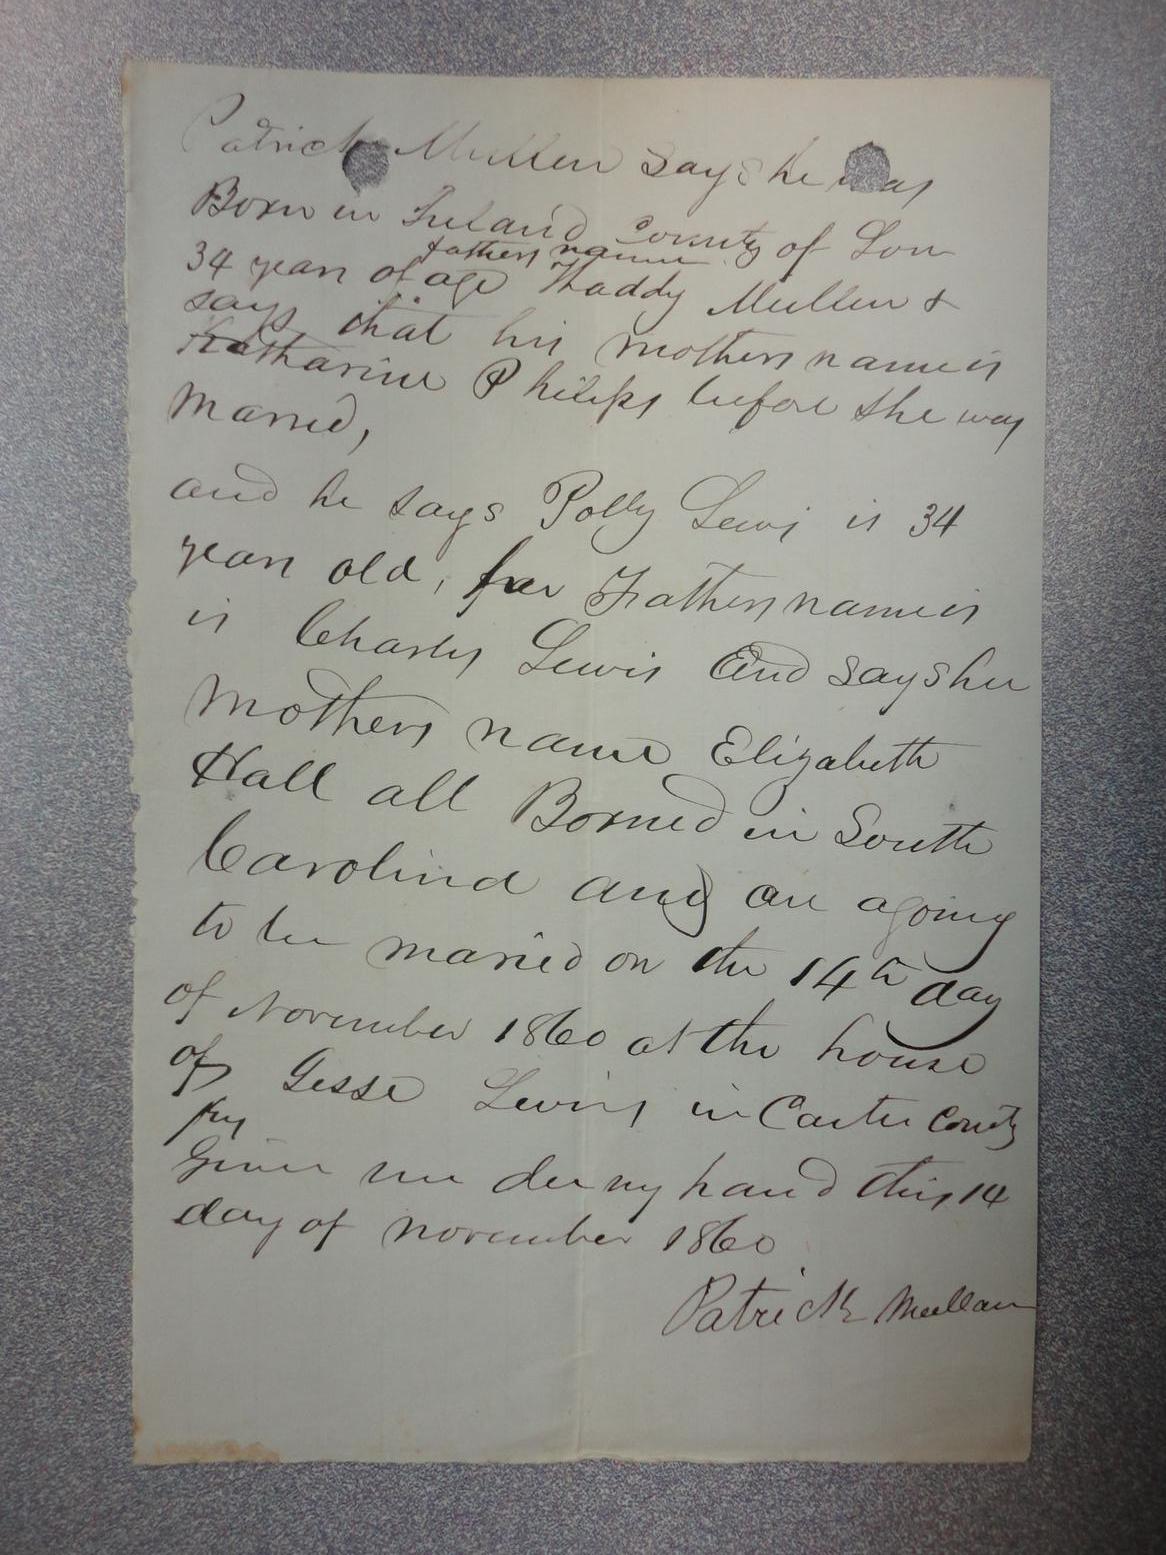 Patrick Mullen says he was
Born in Ireland County of Lon
fathers name
34 years of age Thaddy Mullen &
says that his mothers name is
Katharine Philips before she was
Maried,
and he says Polly Lewis is 34
years old, her Fathers name is
is Charly Lewis And says her
Mothers name Elizabeth
Hall all Borned in South
Carolina and are agoing
to be maried on the 14th day
of November 1860 at the house
of Gesse Lewis in Carter County
Ky
Given un der my hand this 14
day of november 1860
Patrick Mullan